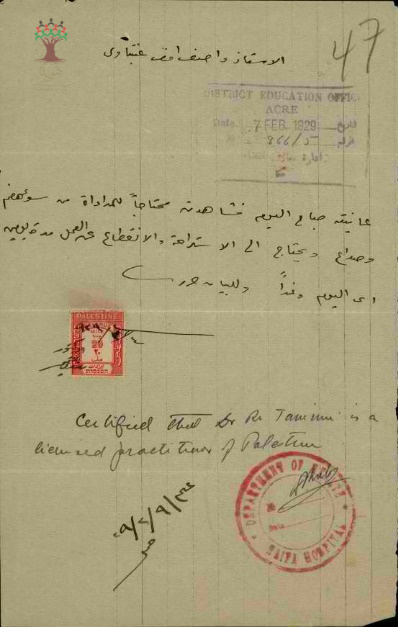 47
الاستاذ واصف افندي عنبتاوي
DISTRICT EDUCATION OFFICE
ACRE
Date 7 FEB 1929
No. 366/5
عاينته صباح اليوم فشاهدته محتاجاً للمداواة من سوء هضم
وصداع ويحتاج الى الاستراحة والانقطاع عن العمل مدة يومين
اي اليوم وغداً وللبيان حررت
PALESTINE
20
٢٠
الدكتور
Certified that Dr R. Tamimi is a
licensed practitioner of Palestine
DEPARTMENT OF HEALTH
HOSPITAL